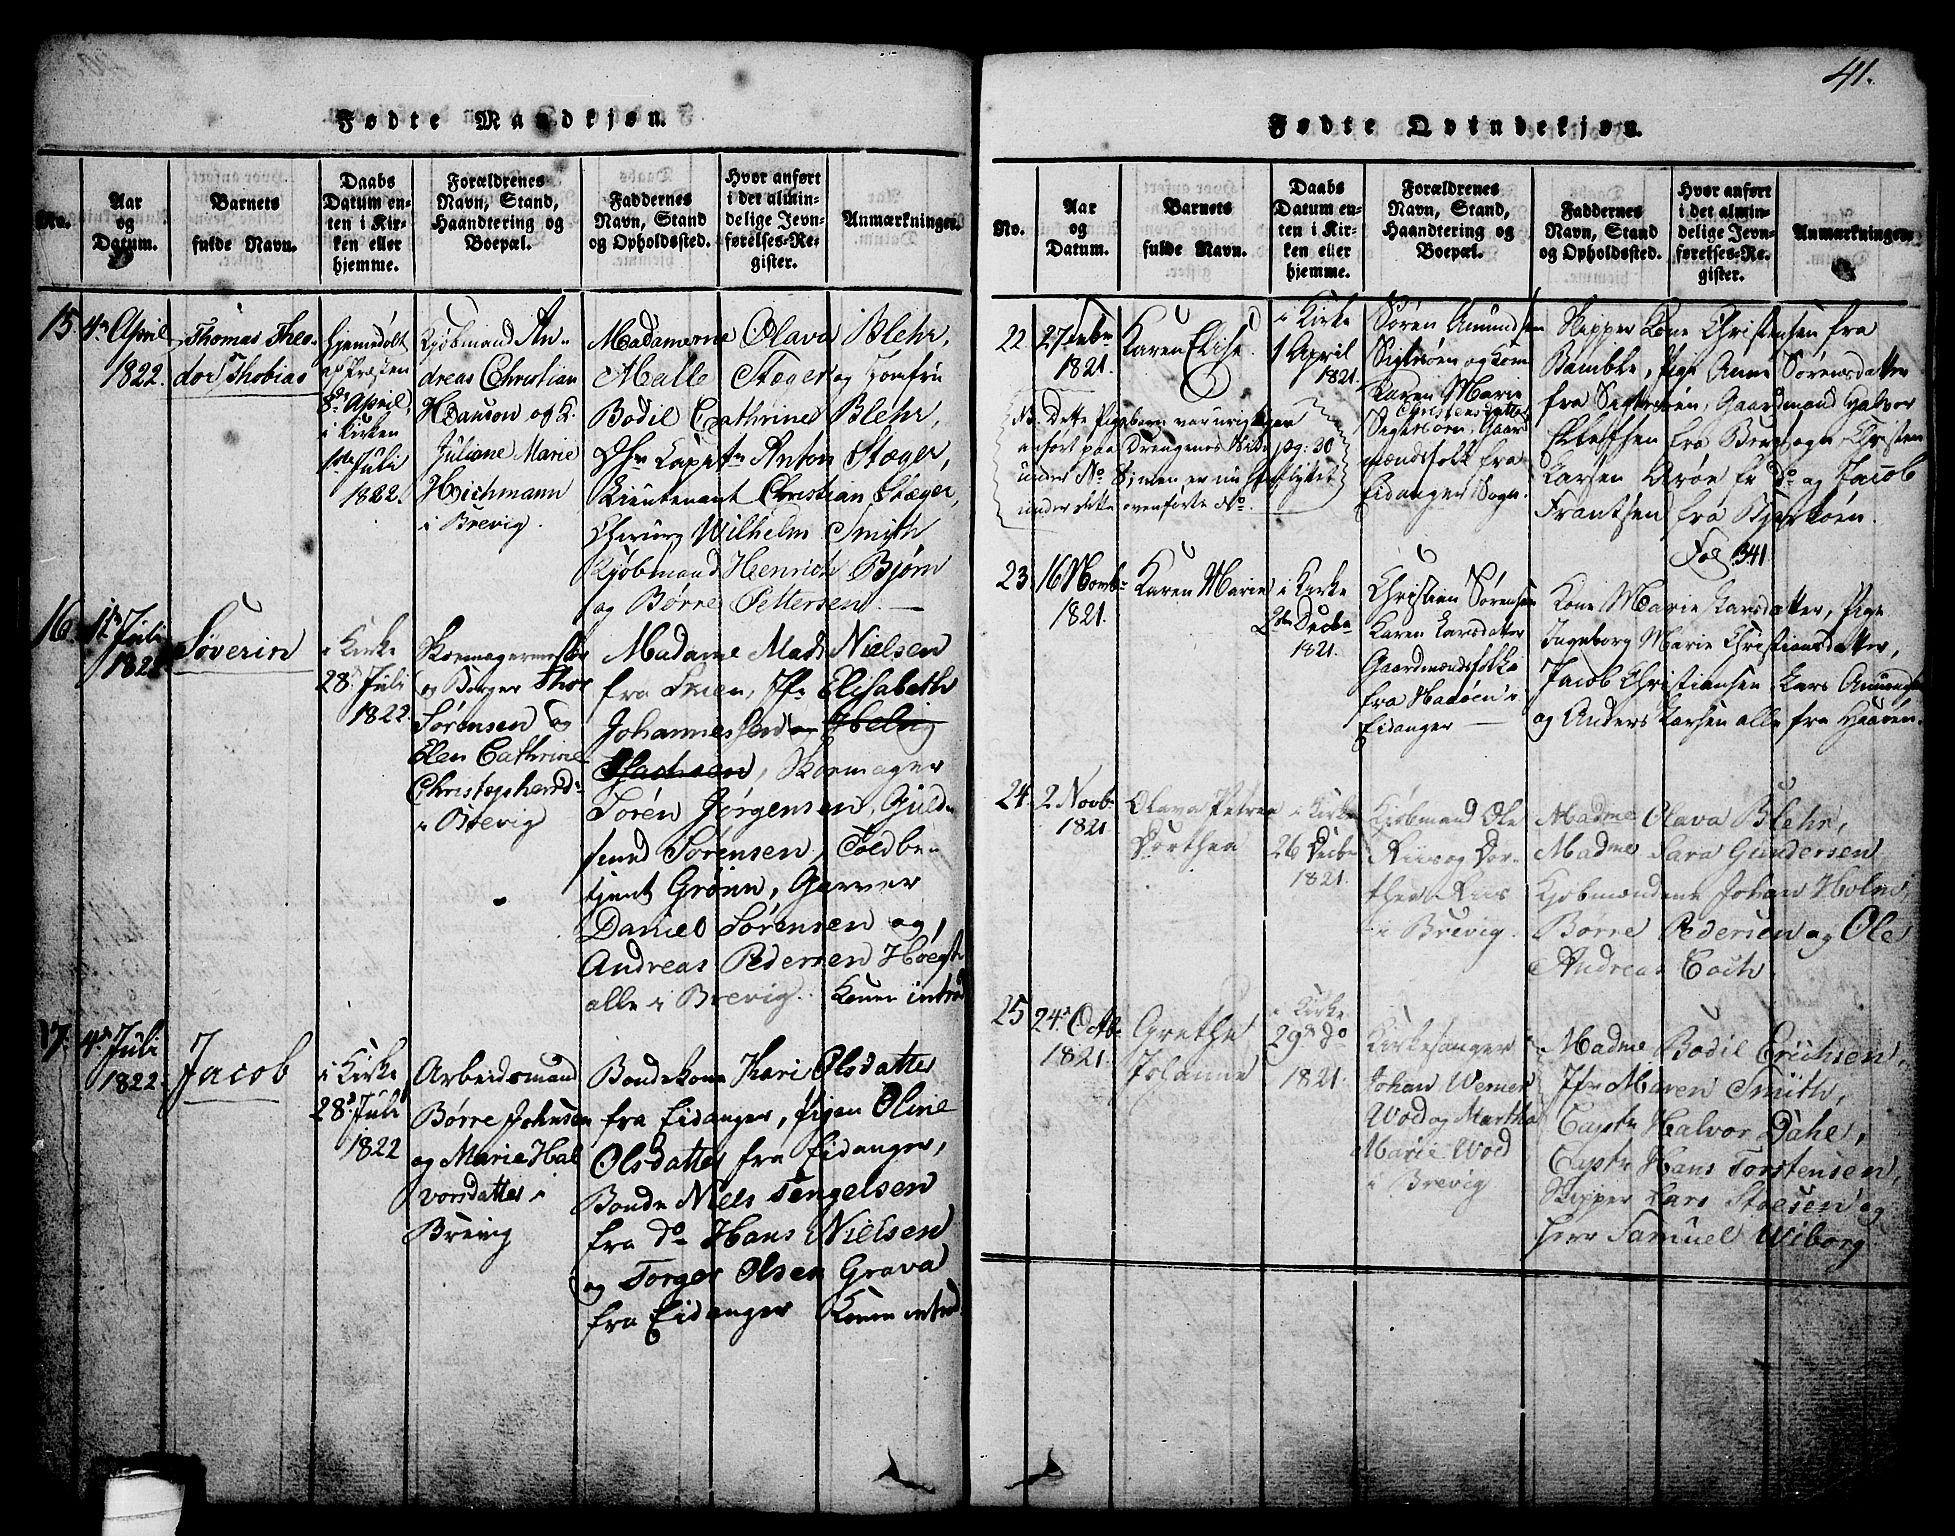 41.
Fødte Mandkjøn.
No.
Aar og Datum.
Barnets fulde Navn.
Daabs Datum enten i Kirken eller hjemme.
Forældrenes Navn, Stand, Haandtering og Boepæl.
Faddernes Navn, Stand og Opholdssted.
Hvor anført i det almindelige Jevnførelses-Register.
Anmærkninger.
15
4de April
1822.
Thomas Theo-
dor Thobias
hjemedøbt
af Præsten
8de April,
i Kirken
1de Juli
1822.
Kjøbmand An-
dreas Christian
Hanson og K.
Juliane Marie
Heichmann
i Brevig.
Madamerne Olava Blehr,
Malle Stæger og Jomfru
Bodil Cathrine Blehr,
Hr Capitn Anton Stæger,
Lieutenant Christian Stæger,
Chirurg Wilhelm Smith
Kjøbmand Henrich Bjørn
og Børre Pettersen.
16
11te Juli
1822
Søverin
i Kirke
28de Juli
1822.
Skomagermester
og Borger Thor
Sørensen og
Elen Cathrine
Christophersd:
i Brevig
Madame Mads Nielsen
fra Skien, Jfr Elisabeth
Johannessen og Helvig
, Skomager
Sören Jørgensen, Guld-
smed Sørensen, Toldbe-
tjent Grönn, Garver
Daniel Sørensen og,
Andreas Pedersen Høegh
alle i Brevig. Konen introd
17.
4de Juli
1822.
Jacob
i Kirke
28de Juli
1822
Arbeidsmand
Børre Johnsen
og Marie Hal
vorsdatter i
Brevig
Bondekone Kari Olsdatter
fra Eidanger, Pigen Oline
Olsdatter fra Eidanger,
Bonde Niels Tengelsen
fra do Hans Nielsen
og Torger Olsen Grava
fra Eidanger Konen introd.
Fødte Qvindekjøn.
No.
Aar og Datum.
Barnets fulde Navn.
Daabs Datum enten i Kirken eller hjemme.
Forældrenes Navn, Stand, Haandtering og Boepæl.
Faddernes Navn, Stand og Opholdssted.
Hvor anført i det almindelige Jevnførelses-Register.
Anmærkninger.
22.
27 Febr
1821.
Karen Elise.
i Kirke
1 April
1821.
Søren Amundsen
Sigtesøen og Kone
Karen Marie
Christensdatter
Gaard
mændsfolk fra
Eidanger Sogn.
NB. Dette Pigebarn var urigtigen
anført paa Drengenes Side, pag: 30
under No men er nu henflyttet
under dette ovenførte No.
Skipper Kone Christensen fra
Bamble, Pige Anne Sørensdatter
fra Sigtesøen, Gaardmand Halvor
Ellefsen fra og Christen
Larsen Arøe fr do og Jacob
Frantsen fra Bjerkøen.
Fol 341
23.
16 Novb
1821.
Karen Marie
i Kirke
2den Decbr
1821.
Christian Sørensen
Karen Larsdatter
Gaardmændsfolk
fra i
Eidanger
Kone Marie Larsdatter, Pige
Ingeborg Marie Christiansdatter,
Jacob Christiansen, Lars Amundsen
og Anders Larsen alle fra Haaøen.
24
2 Novb
1821
Olava Petrea
Dorthea
i Kirke
26 Decbr
1821.
Kjøbmand Ole
Riis og Dor-
thea Riis
i Brevig.
Madme Olava Blehr,
Madme Sara Gundersen
Kjøbmændene Johan Holm,
Børre Pedersen og Ole
Andreas Coch.
25
24de Octb
1821.
Grethe
Jolanne
i Kirke
29de Do
1821.
Kirkesanger
Johan Werner
Wod og Martha
Marie Wod
i Brevig
Madme Bodil Erichsen,
Jfr Maren Smith,
Captn Halvor Dahl,
Captn Hans Torstensen,
Skipper Lars Stolsen og
Herr Samuel Wiborg